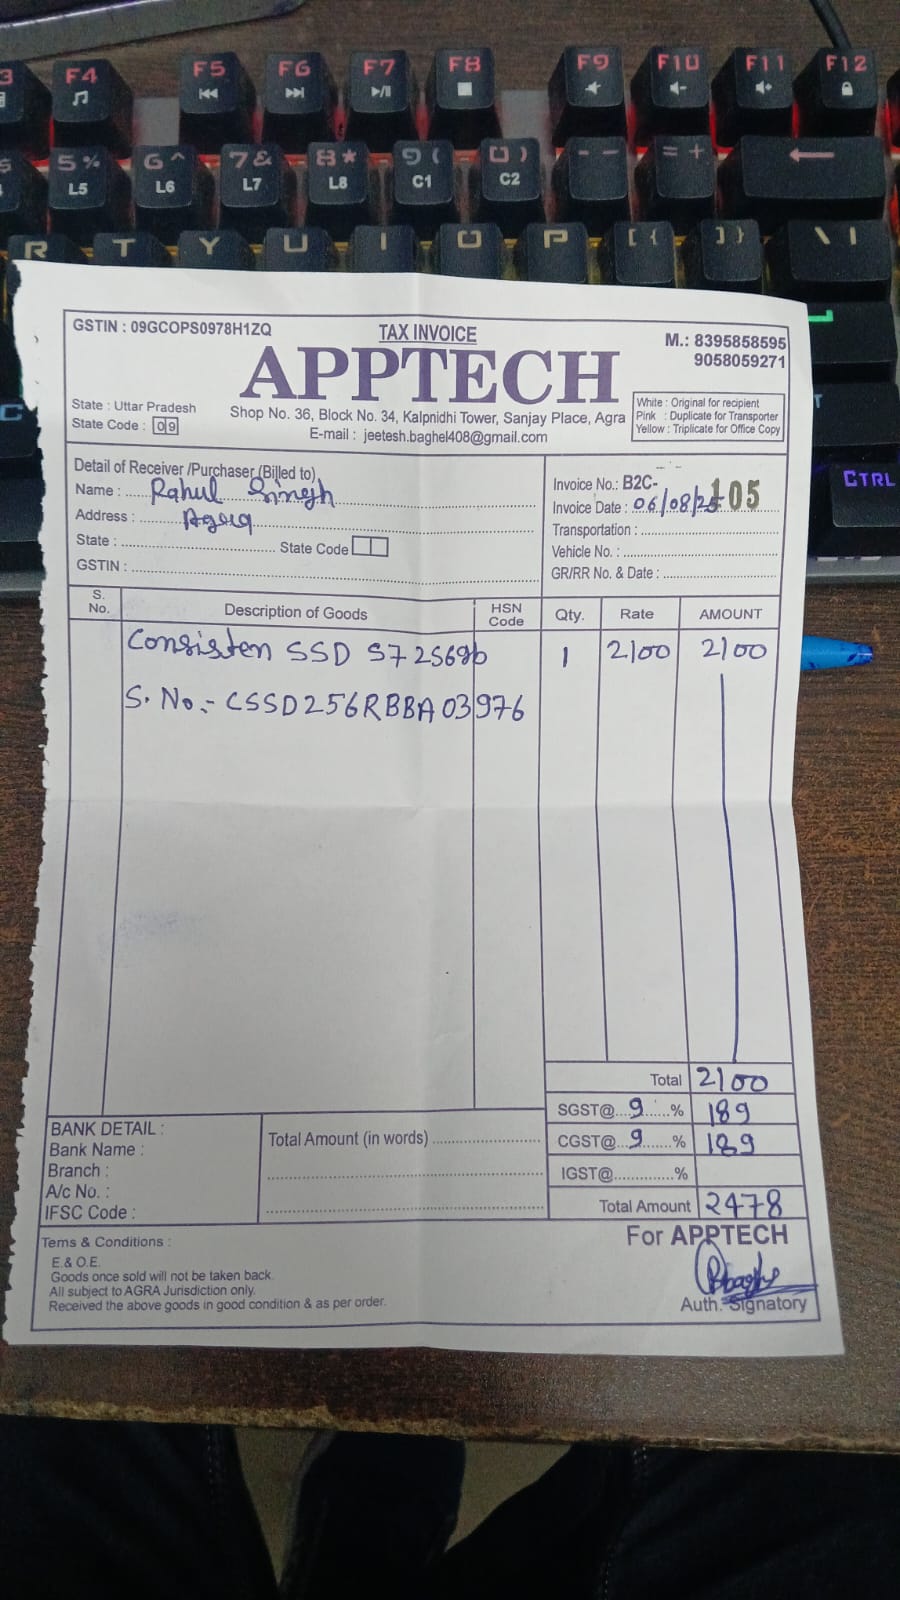 3 F4 F5 F6 F7 F8 F9 F10 F11 F12
$ 5% 6^ 7& 8* 9( 0) - - = +
L5 L6 L7 L8 C1 C2
R T Y U I O P [ { ] } \ |
C
CTRL
GSTIN : 09GCOPS0978H1ZQ
TAX INVOICE
M.: 8395858595
9058059271
APPTECH
State : Uttar Pradesh
State Code : 09
Shop No. 36, Block No. 34, Kalpnidhi Tower, Sanjay Place, Agra
E-mail : jeetesh.baghel408@gmail.com
White : Original for recipient
Pink : Duplicate for Transporter
Yellow : Triplicate for Office Copy
Detail of Receiver /Purchaser (Billed to)
Name : Rahul Singh
Address : Agra
State : State Code
GSTIN :
Invoice No.: B2C- 105
Invoice Date : 06/08/25
Transportation :
Vehicle No. :
GR/RR No. & Date :
S. No. Description of Goods HSN Code Qty. Rate AMOUNT
Consisten SSD 1 2100 2100
S. No.:- CSSD256RBBA03976
Total 2100
SGST@ 9 % 189
CGST@ 9 % 189
IGST@ %
Total Amount 2478
BANK DETAIL :
Bank Name :
Branch :
A/c No. :
IFSC Code :
Total Amount (in words)
Tems & Conditions :
E. & O.E.
Goods once sold will not be taken back.
All subject to AGRA Jurisdiction only.
Received the above goods in good condition & as per order.
For APPTECH
Auth. Signatory